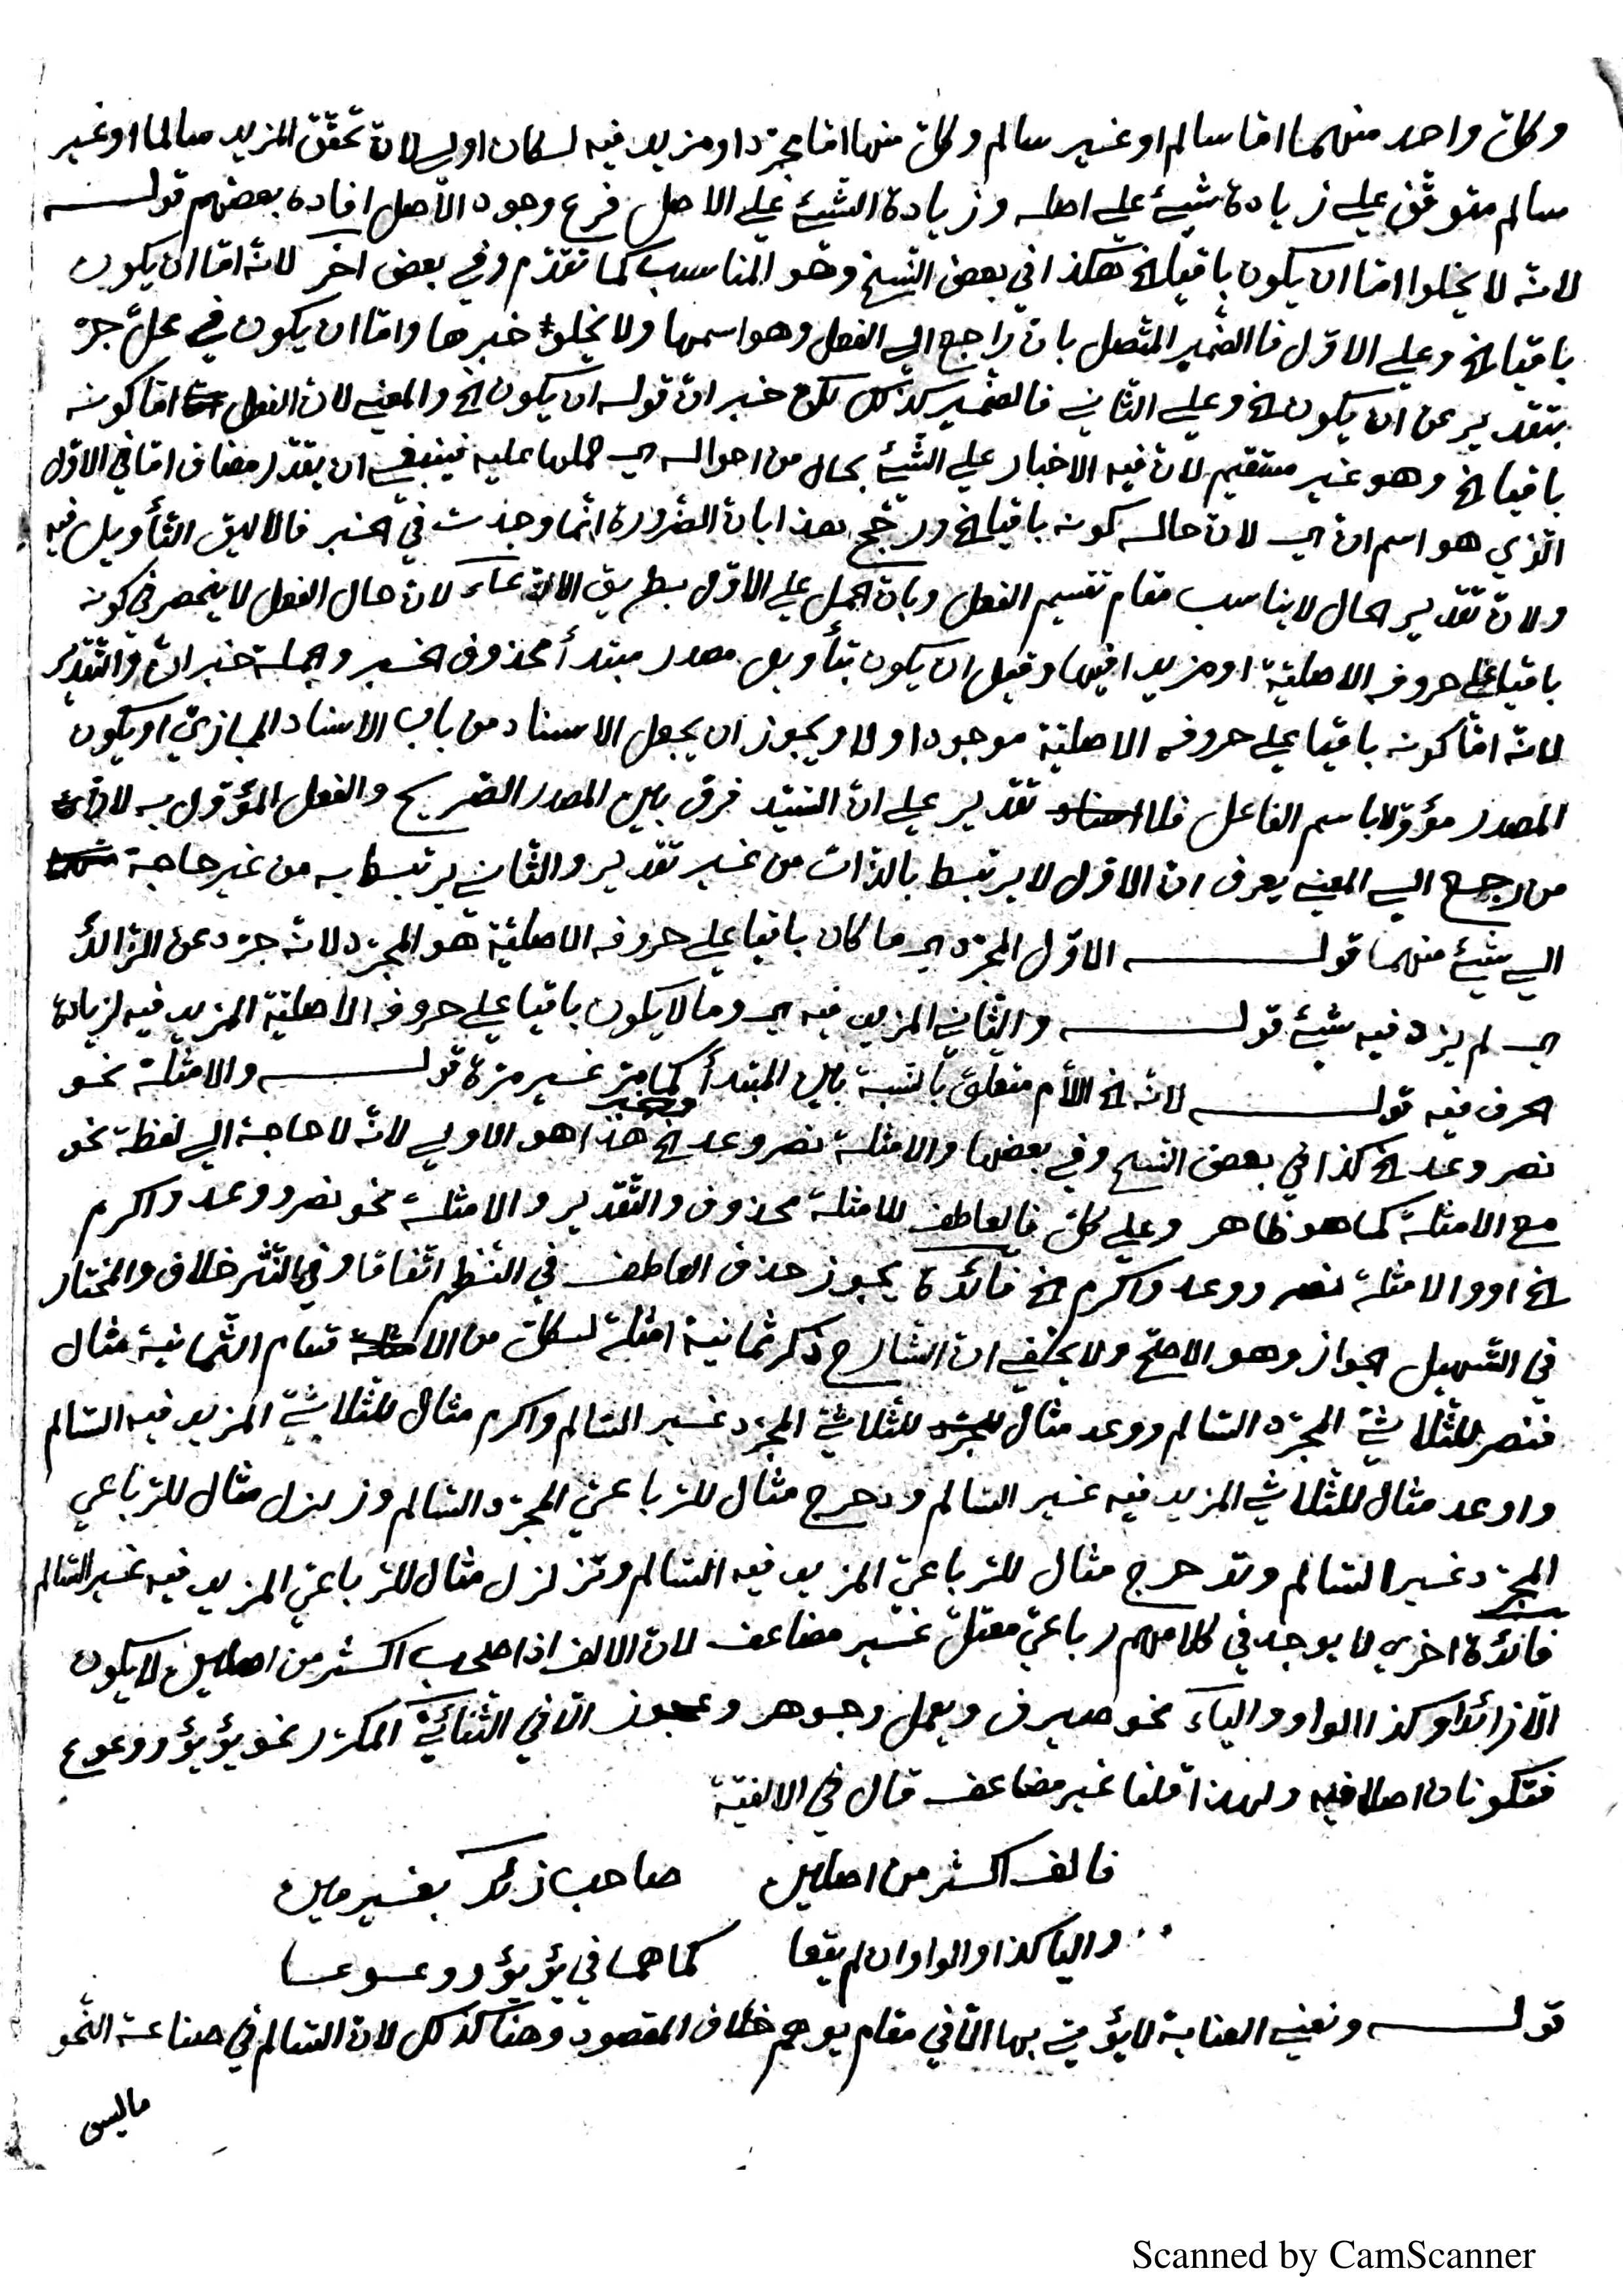 وكلّ واحد منهما امّا سالم او غير سالم وكلّ منها امّا مجرّد او مزيد فيه لكان اولى لانّ تحقّق المزيد سالما او غير
سالم متوقّف على زيادة شيئ على اصله وزيادة الشيئ على الاصل فرع وجود الاصل افاده بعضهم قوله
لانّه لا يخلوا امّا ان يكون باقيا الخ هكذا في بعض النّسخ وهو المناسب كما تقدّم وفي بعض اخر لانّه امّا ان يكون
باقيا الخ وعلى الاوّل فالضّمير المتّصل بانّ راجع الى الفعل وهو اسمها ولا يخلو خبرها وامّا ان يكون في محلّ جرّ
بتقدير عن ان يكون الخ وعلى الثّاني فالضّمير كذلك خبر انّ قوله ان يكون الخ والمعنى لانّ الفعل امّا كونه
باقيا الخ وهو غير مستقيم لانّ فيه الاخبار على الشّيئ بحال من احواله اي حملها عليه فينبغي ان يقدّر مضاف امّا في الاوّل
الّذي هو اسم انّ اي لانّ حاله كونه باقيا الخ ورجّح هذا بانّ الضّرورة انّما وجدت في الخبر فالاليق التّأويل فيه
ولانّ تقدير الحال لا يناسب مقام تقسيم الفعل وبانّ الحمل على الاوّل بطريق الادّعاء لانّ حال الفعل لا ينحصر في كونه
باقيا على حروفه الاصليّة او مزيدا فيها وقيل ان يكون بتأويل مصدر مبتدأ محذوف الخبر والجملة خبر انّ والتّقدير
لانّه امّا كونه باقيا على حروفه الاصليّة موجود او لا ويجوز ان يجعل الاسناد من باب الاسناد المجازيّ او يكون
المصدر مؤوّلا باسم الفاعل فلا تقدير على انّ السّيّد فرق بين المصدر الصّريح والفعل المؤوّل به لانّ
من رجع الى المعنى يعرف انّ الاوّل لا يرتبط بالذّات من غير تقدير والثّاني يرتبط به من غير حاجة
الى شيئ منهما قوله الاوّل المجرّد اي ما كان باقيا على حروفه الاصليّة هو المجرّد لانّه جرّد عن الزّائد
اي لم يزد فيه شيئ قوله والثّاني المزيد فيه اي وما لا يكون باقيا على حروفه الاصليّة المزيد فيه لزيادة
الحرف فيه قوله لانّه الخ اللّام متعلّق بالنّسبة بين المبتدأ والخبر كما مرّ غير مرّة قوله والامثلة نحو
نصر وعد الخ كذا في بعض النّسخ وفي بعضها والامثلة نصر وعد الخ هذا هو الاولى لانّه لا حاجة الى لفظة نحو
مع الامثلة كما هو ظاهر وعلى كلّ فالعاطف للامثلة محذوف والتّقدير والامثلة نحو نصر ووعد واكرم
الخ او والامثلة نصر ووعد واكرم الخ فائدة يجوز حذف العاطف في النّظم اتّفاقا وفي النّثر خلاف والمختار
في التّسهيل الجواز وهو الاصحّ ولا يخفى انّ الشّارح ذكر ثمانية امثلة لكلّ من الاقسام الثّمانية مثال
فنصر للثّلاثيّ المجرّد السّالم ووعد مثال للثّلاثيّ المجرّد غير السّالم واكرم مثال للثّلاثيّ المزيد فيه السّالم
واوعد مثال للثّلاثي المزيد فيه غير السّالم ودحرج مثال للرّباعيّ المجرّد السّالم وزلزل مثال للرّباعي
المجرّد غير السّالم وتدحرج مثال للرّباعيّ المزيد فيه السّالم وتزلزل مثال للرّباعيّ المزيد فيه غير السّالم
فائدة اخرى لا يوجد في كلامهم رباعيّ معتلّ غير مضاعف لانّ الالف اذا صاحب اكثر من اصلين لا يكون
الّا زائدا وكذا الواو والياء نحو صيرف ويعمل وجوهر وعجوز الّا في الثّنائيّ المكرّر نحو يؤيؤ ووعوع
فتكونان اصلا فيه ولهذا قلنا غير مضاعف قال في الالفيّة
فالف اكثر من اصلين صاحب زائد بغير مين
واليا كذا والواو ان لم يقعا كما هما في يؤيؤ ووعوعا
قوله ونعني العناية لا يؤتى بها الّا في مقام يوهم خلاف المقصود وهنا كذلك لانّ السّالم في صناعة النّحو
ما ليس
Scanned by CamScanner